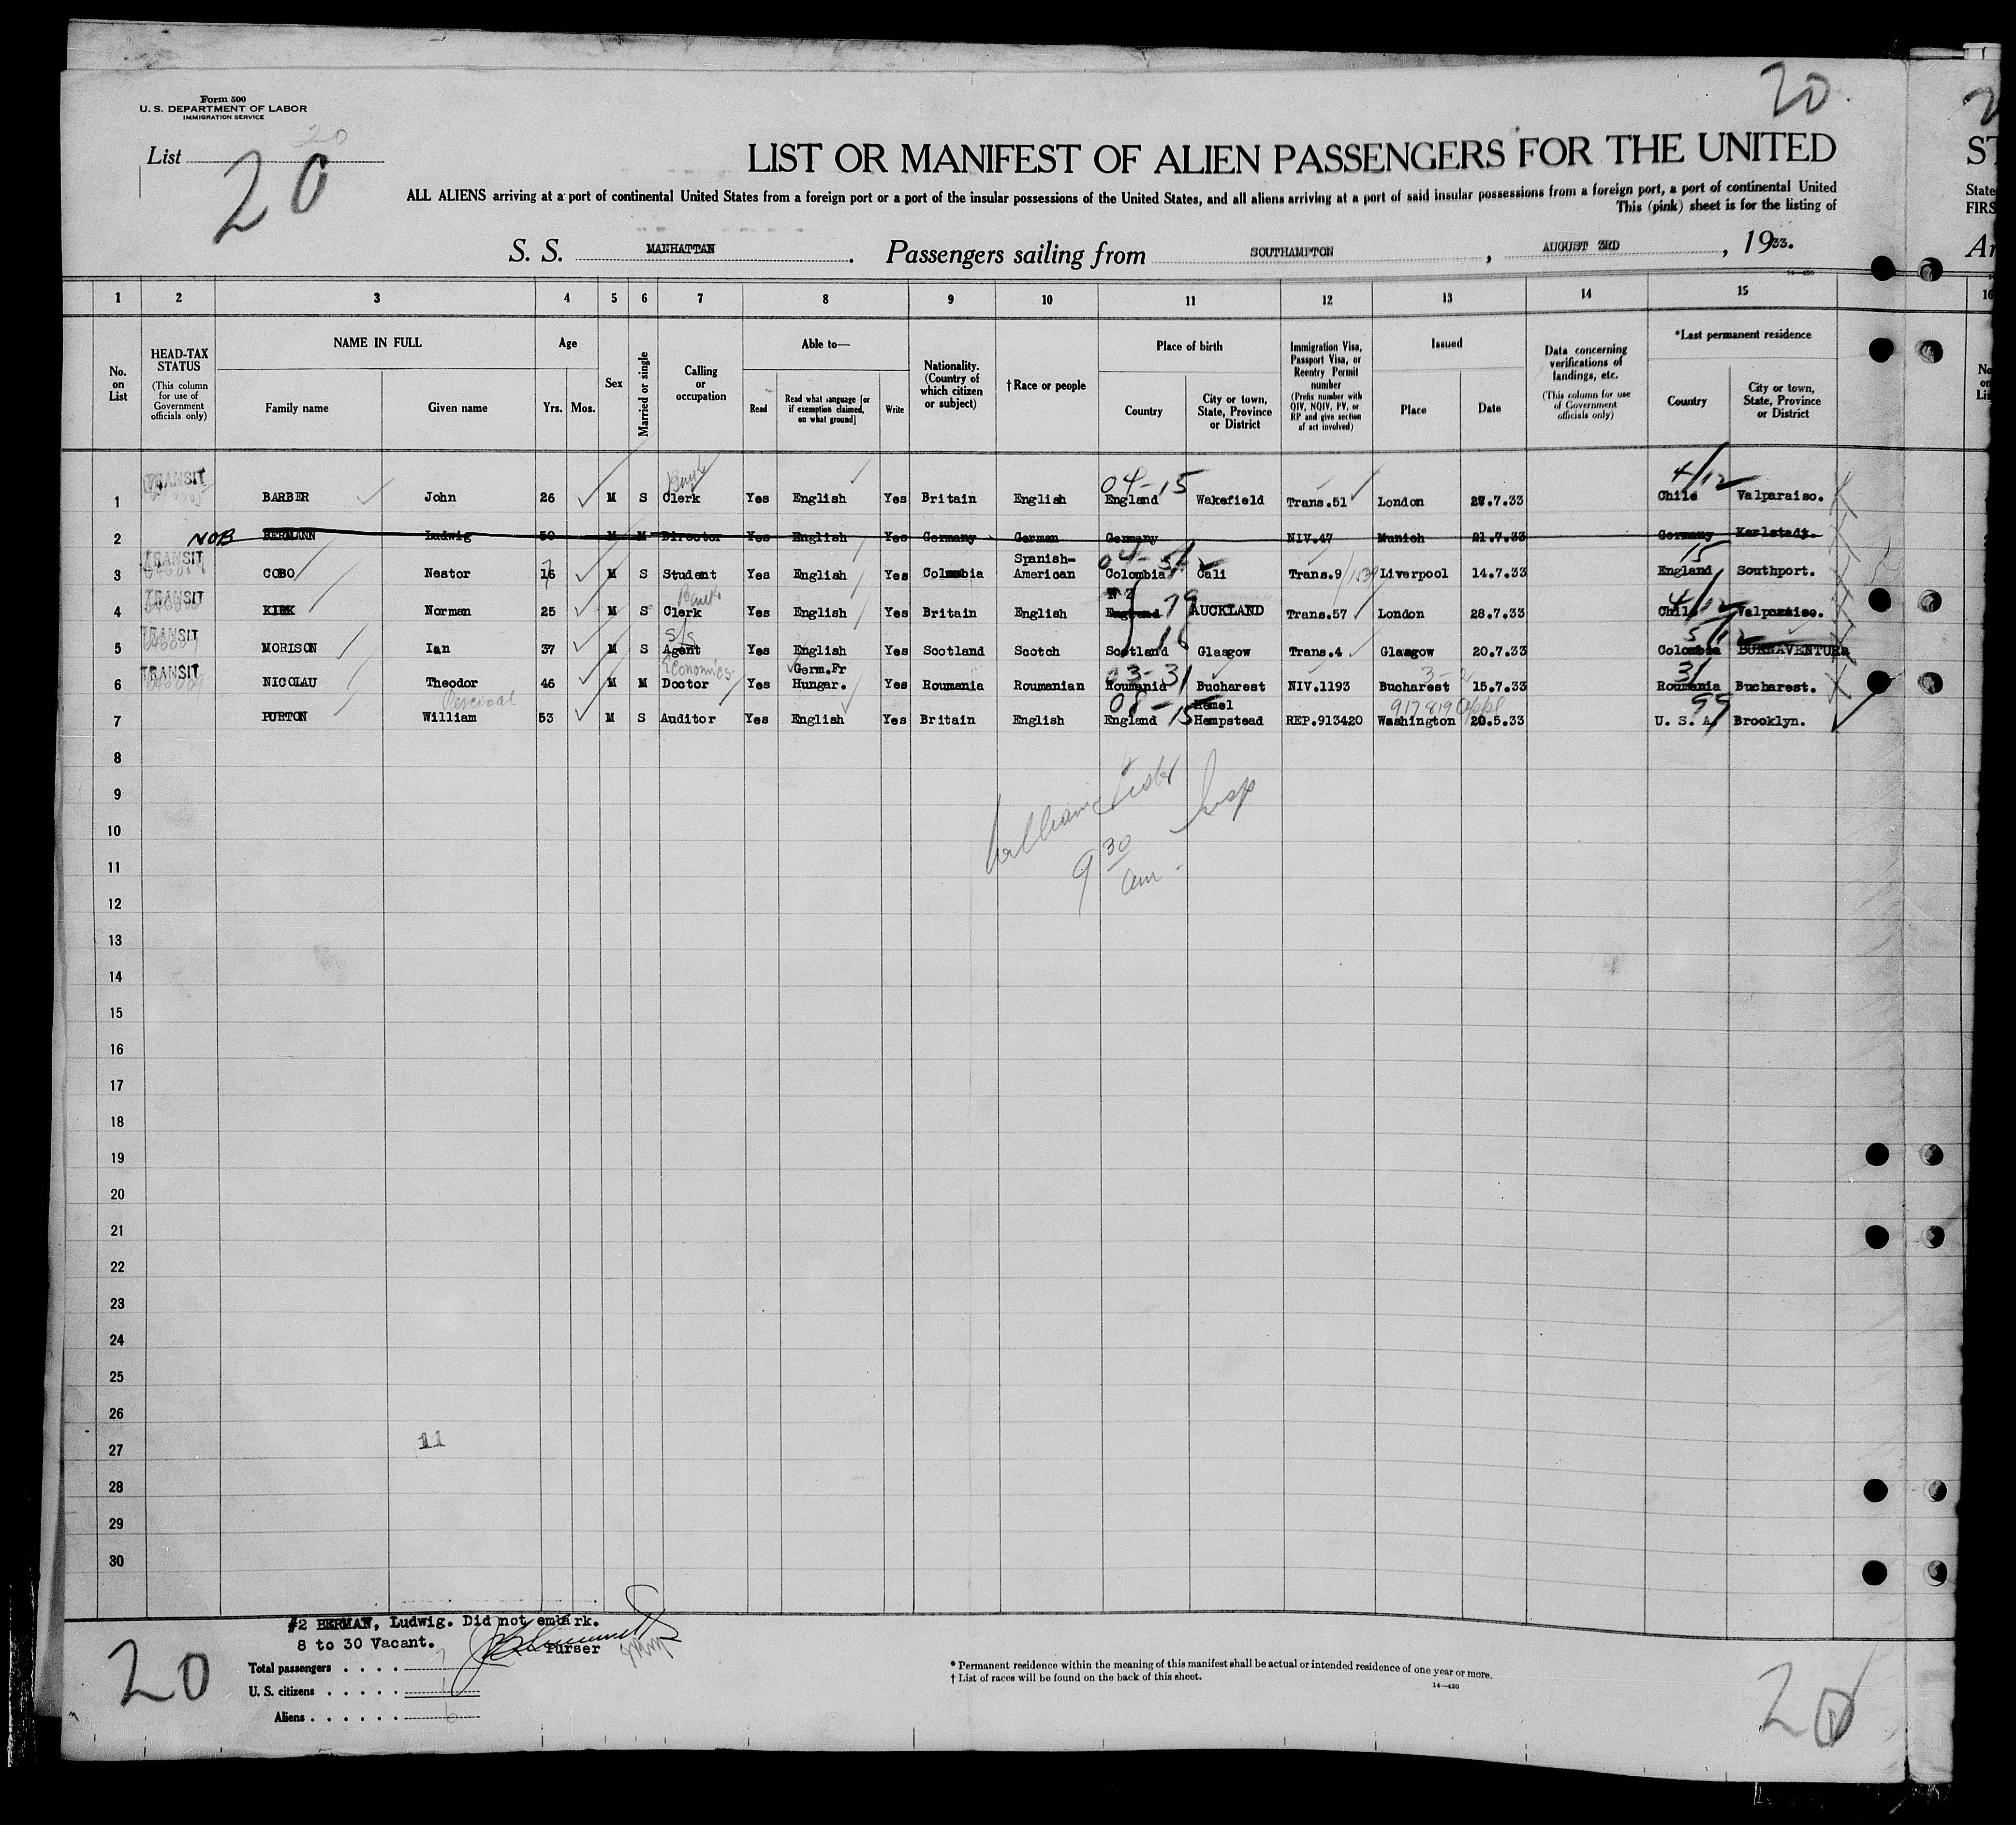 Form 500
U. S. DEPARTMENT OF LABOR
IMMIGRATION SERVICE
20
20
List
20
LIST OR MANIFEST OF ALIEN PASSENGERS FOR THE UNITED
ST
ALL ALIENS arriving at a port of continental United States from a foreign port or a port of the insular possessions of the United States, and all aliens arriving at a port of said insular possessions from a foreign port, a port of continental United
State
This (pink) sheet is for the listing of
FIRS
S. S. MANHATTAN. Passengers sailing from SOUTHAMPTON, AUGUST 3RD, 1933.
Ar
14—430
1 2 3 4 5 6 7 8 9 10 11 12 13 14 15 16
No. on List
HEAD-TAX STATUS
(This column for use of Government officials only)
NAME IN FULL
Family name
Given name
Age
Yrs. Mos.
Sex
Married or single
Calling or occupation
Able to—
Read
Read what language [or if exemption claimed, on what ground]
Write
Nationality. (Country of which citizen or subject)
† Race or people
Place of birth
Country
City or town, State, Province or District
Immigration Visa, Passport Visa, or Reentry Permit number
(Prefix number with QIV, NQIV, PV, or RP and give section of act involved)
Issued
Place
Date
Data concerning verifications of landings, etc.
(This column for use of Government officials only)
*Last permanent residence
Country
City or town, State, Province or District
TRANSIT Bank 04-15 4/12
1 BARBER John 26 M S Clerk Yes English Yes Britain English England Wakefield Trans.51 London 28.7.33 Chile Valparaiso.
2 NOB BERMANN Ludwig 50 M M Director Yes English Yes Germany German Germany NIV.47 Munich 21.7.33 Germany Karlstadt.
TRANSIT Spanish- 04-51 15
3 COBO Nestor 16 M S Student Yes English Yes Colombia American Colombia Cali Trans.9 Liverpool 14.7.33 England Southport.
TRANSIT Bank NZ 79 4/12
4 KIRK Norman 25 M S Clerk Yes English Yes Britain English England AUCKLAND Trans.57 London 28.7.33 Chile Valparaiso.
TRANSIT S/S 16 5/12
5 MORISON Ian 37 M S Agent Yes English Yes Scotland Scotch Scotland Glasgow Trans.4 Glasgow 20.7.33 Colombia BUENAVENTURA
TRANSIT Economics Germ.Fr 03-31 3-2 31
6 NICOLAU Theodor 46 M M Doctor Yes Hungar. Yes Roumania Roumanian Roumania Bucharest NIV.1193 Bucharest 15.7.33 Roumania Bucharest.
Percival 08-15 Hemel 917819 99
7 PURTON William 53 M S Auditor Yes English Yes Britain English England Hempstead REP.913420 Washington 20.5.33 U. S. A. Brooklyn.
8
William Insp
9
9 30
am
10
11
12
13
14
15
16
17
18
19
20
21
22
23
24
25
26
27 11
28
29
30
#2 BERMAN, Ludwig. Did not embark.
8 to 30 Vacant.
Purser
20
Total passengers . . . . 7
U. S. citizens . . . . . 1
Aliens . . . . . . 6
* Permanent residence within the meaning of this manifest shall be actual or intended residence of one year or more.
† List of races will be found on the back of this sheet.
14—430
20